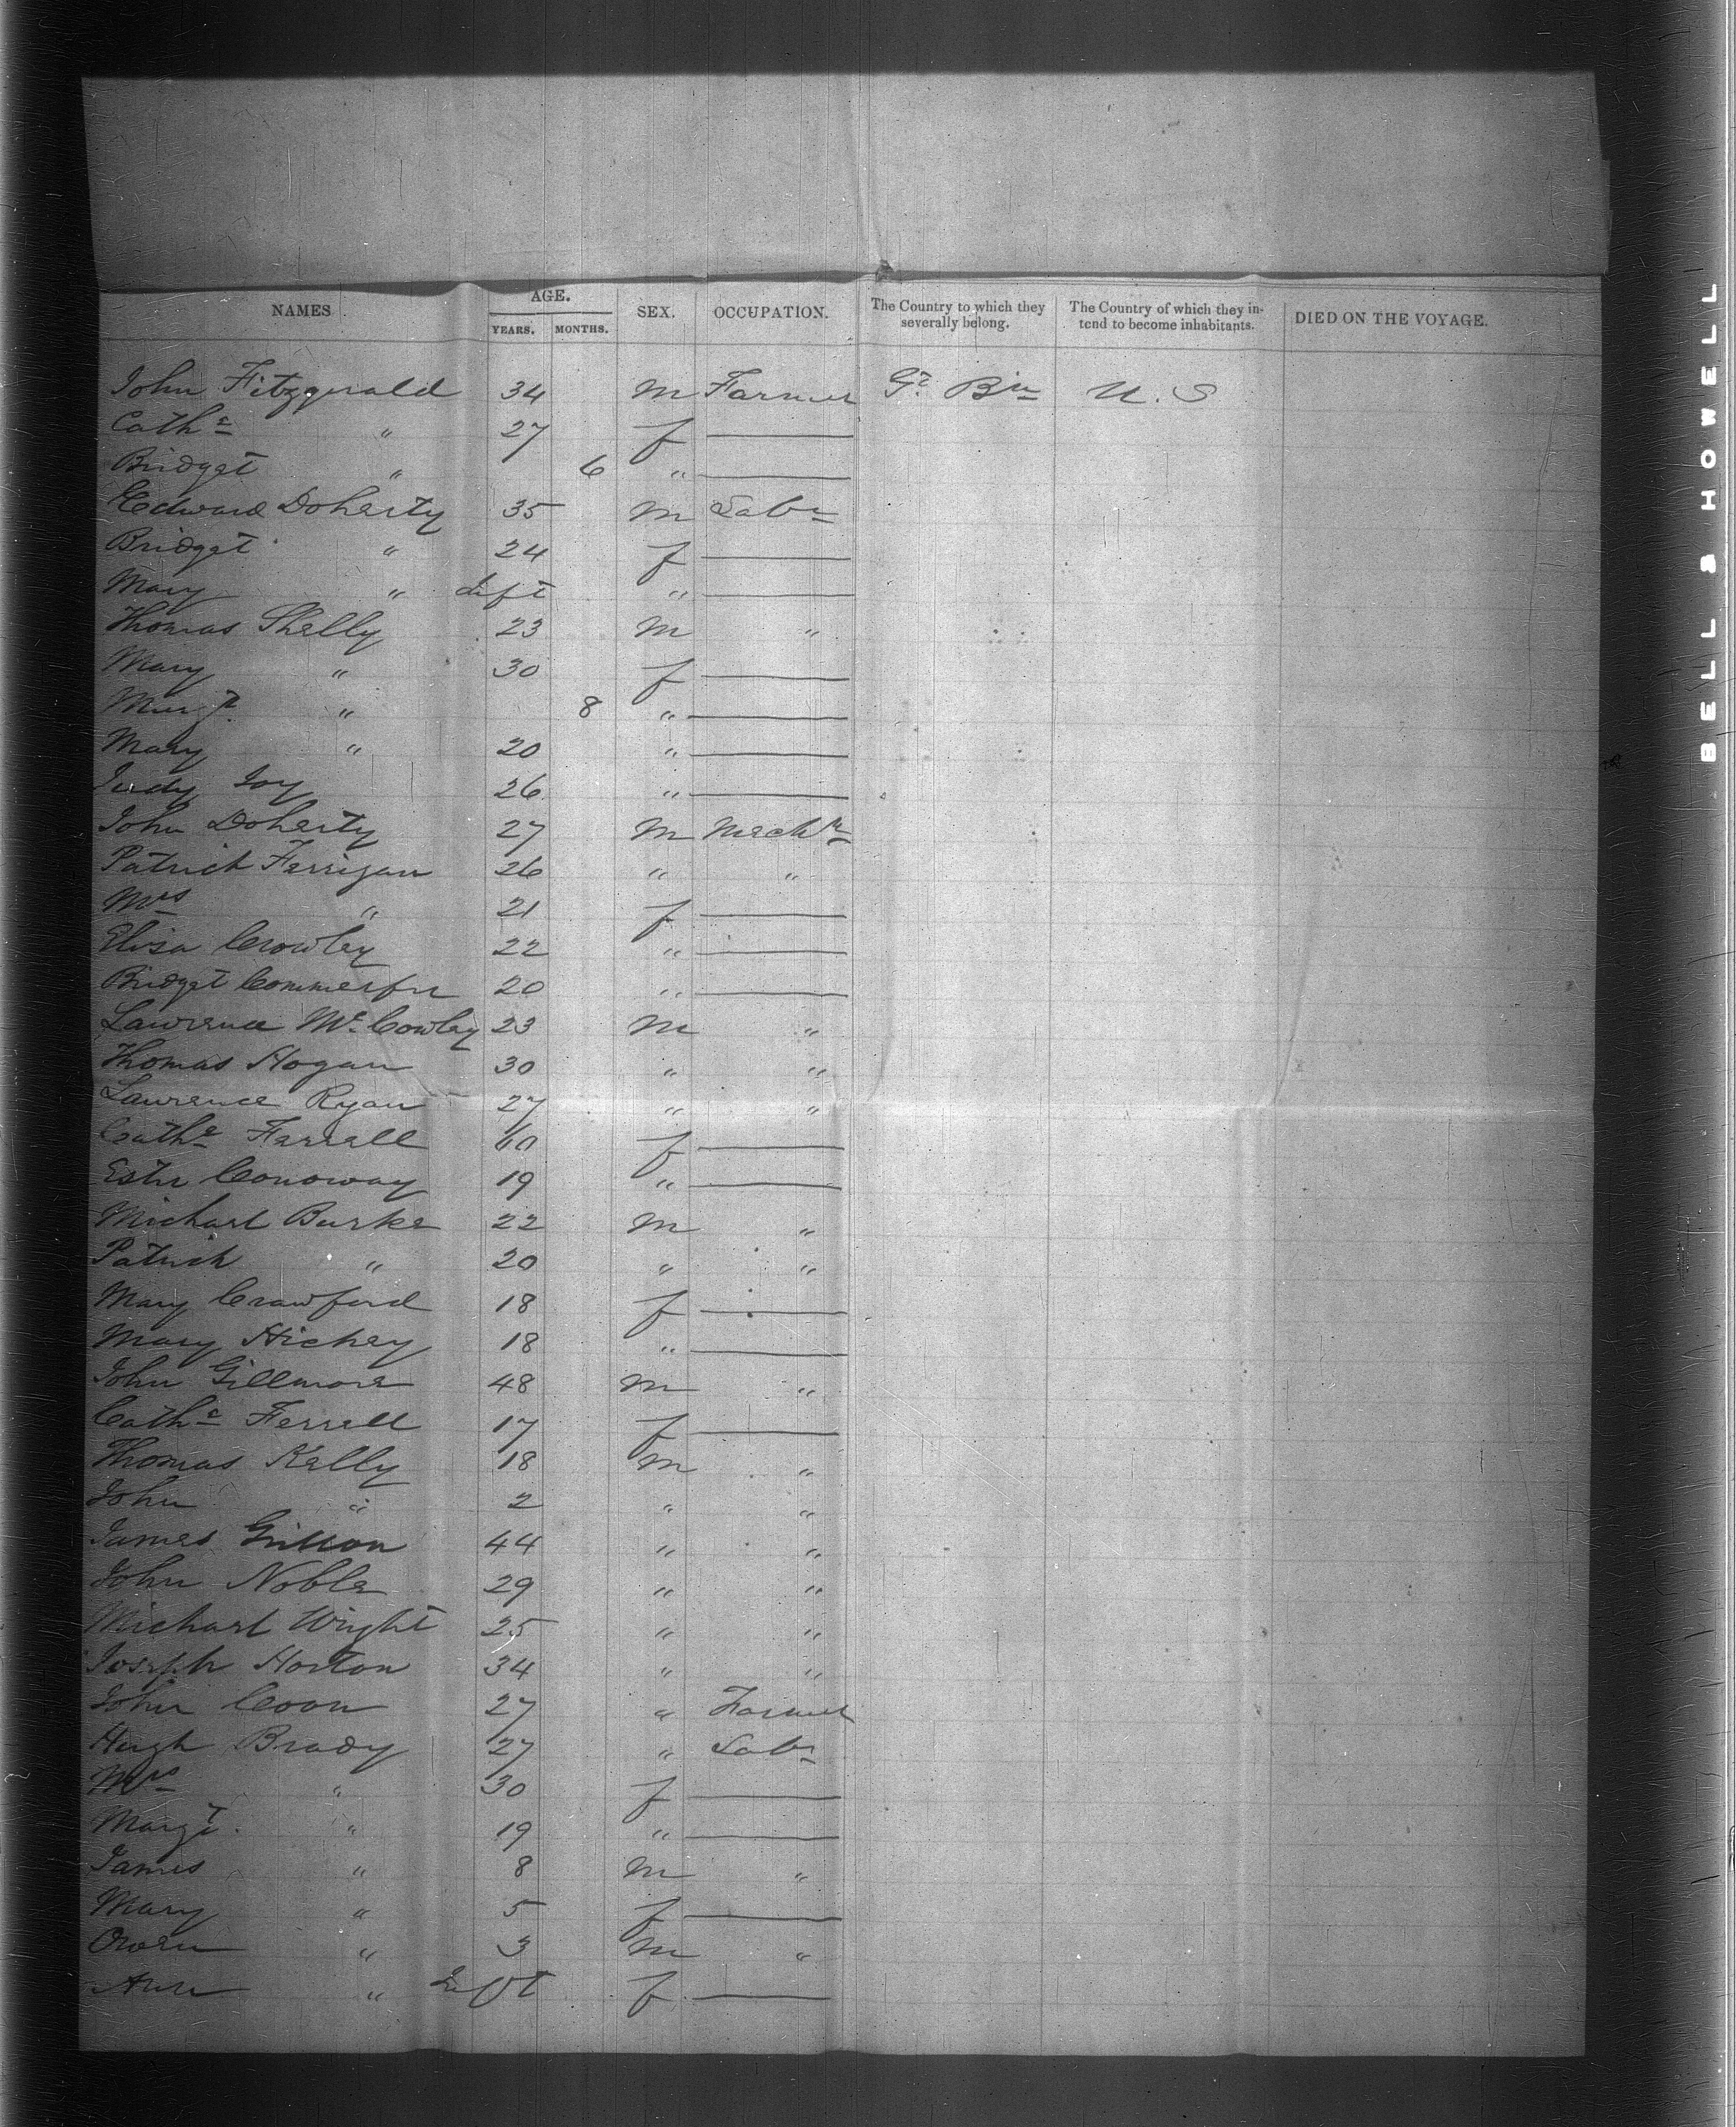 NAMES. AGE. SEX. OCCUPATION. The Country to which they severally belong. The Country of which they intend to become inhabitants. DIED ON THE VOYAGE.
YEARS. MONTHS.
John Fitzgerald 34 m Farmer Gt. Bin U. S
Cathe " 27 f —
Bridget " 6 " —
Edward Doherty 35 m Labr
Bridget " 24 f —
Mary " Inft " —
Thomas Shelly 23 m "
Mary " 30 f —
Margt. " 8 " —
Mary " 20 " —
Judy Joy 26 " —
John Doherty 27 m Mech
Patrick Farrigan 26 " "
Mrs " 21 f —
Elisa Crowley 22 " —
Bridget 20 " —
Lawrence Mc. Cowley 23 m "
Thomas Hogan 30 " "
Lawrence Ryan 27 " "
Cathe Farrell 60 f —
Estr Conoway 19 " —
Michael Burke 22 m "
Patrick " 20 " "
Mary Crawford 18 f —
Mary Hickey 18 " —
John Gillmore 48 m "
Cathe Ferrell 17 f —
Thomas Kelly 18 m "
John " 2 " "
James 44 " "
John Noble 29 " "
Michael Wright 25 " "
Joseph Horton 34 " "
John Coon 27 " Farmer
Hugh Brady 27 " Labr
Mrs " 30 f —
Margt. " 19 " —
James " 8 m "
Mary " 5 f —
Owen " 3 m "
Ann " Inft f —
BELL & HOWELL